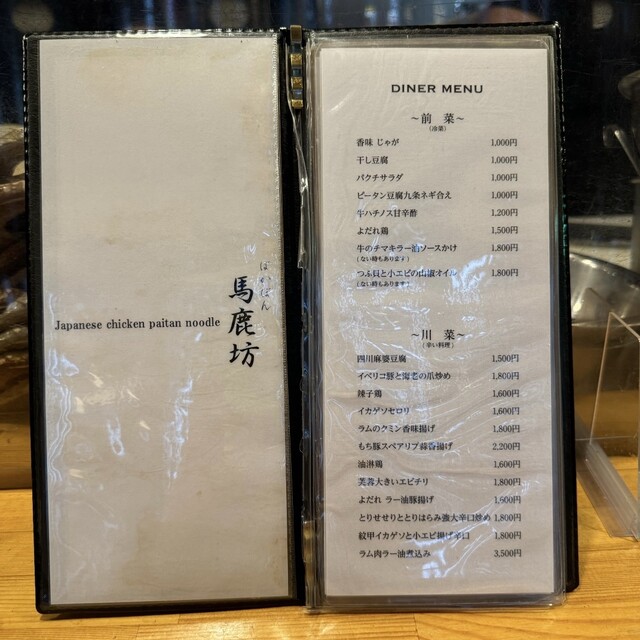 ばかぼん
馬鹿坊
Japanese chicken paitan noodle
DINER MENU
～前 菜～
(冷菜)
香味 じゃが 1,000円
干し豆腐 1,000円
パクチサラダ 1,000円
ピータン豆腐九条ネギ合え 1,000円
牛ハチノス甘辛酢 1,200円
よだれ鶏 1,500円
牛のチマキラー油ソースかけ 1,800円
(ない時もあります)
つぶ貝と小エビの山椒オイル 1,800円
(ない時もあります)
～川 菜～
(辛い料理)
四川麻婆豆腐 1,500円
イベリコ豚と海老の爪炒め 1,800円
辣子鶏 1,600円
イカゲソセロリ 1,600円
ラムのクミン香味揚げ 1,800円
もち豚スペアリブ蒜香揚げ 2,200円
油淋鶏 1,600円
芙蓉大きいエビチリ 1,800円
よだれ ラー油豚揚げ 1,600円
とりせせりととりはらみ強大辛口炒め 1,800円
紋甲イカゲソと小エビ揚げ辛口 1,800円
ラム肉ラー油煮込み 3,500円